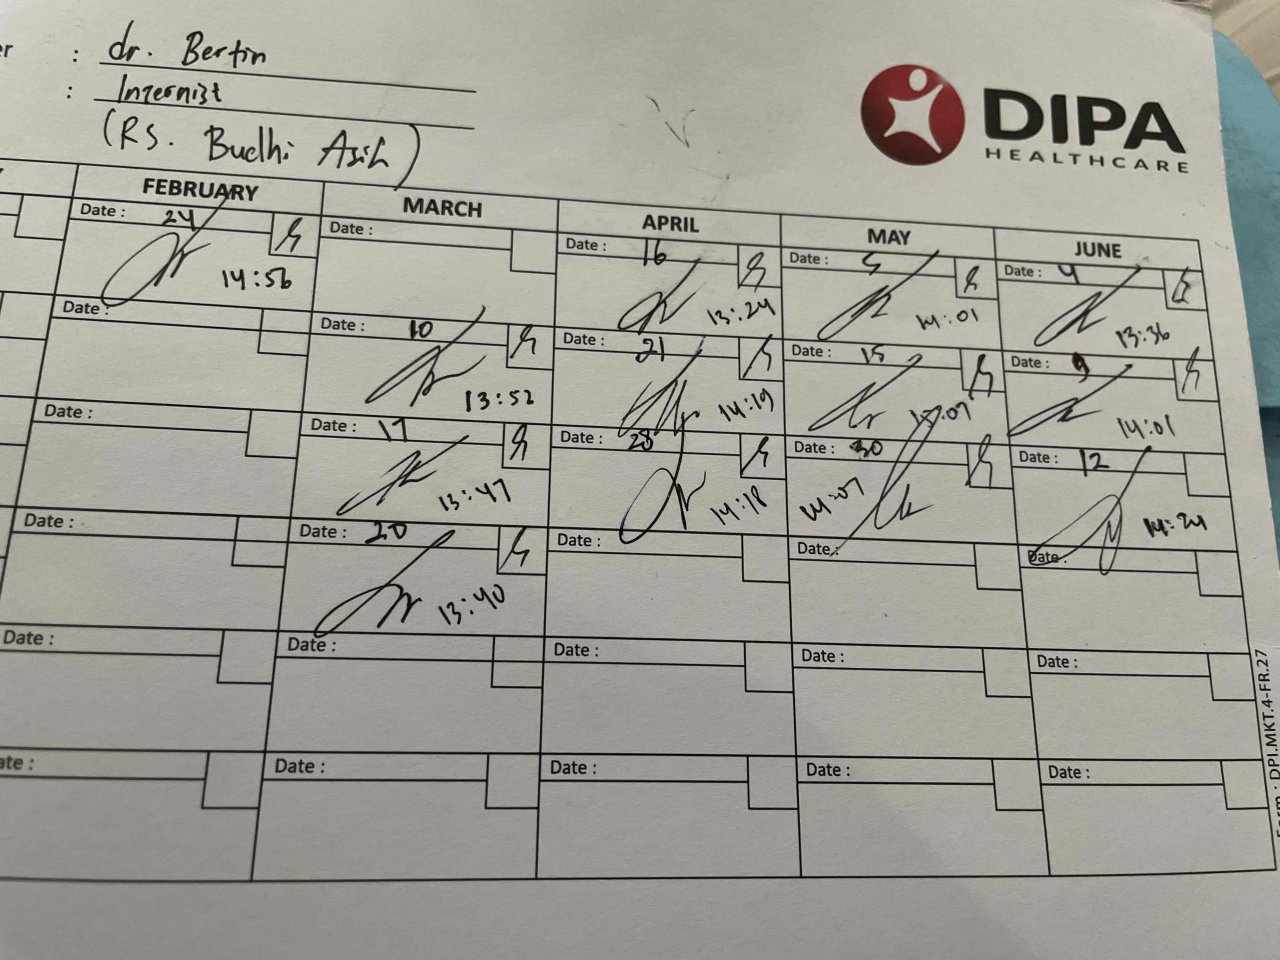 : dr. Bertin
: Internist
(RS. Budhi Asih)
DIPA
HEALTHCARE
FEBRUARY MARCH APRIL MAY JUNE
Date : 24 Date : Date : 16 Date : 5 Date : 4
14:56 13:24 14:01 13:36
Date : Date : 10 Date : 21 Date : 15 Date : 9
13:52 14:19 14:01
Date : Date : 17 Date : 28 Date : 30 Date : 12
13:47 14:18 14:07 14:24
Date : Date : 20 Date : Date : Date :
13:40
Date : Date : Date : Date : Date :
Date : Date : Date : Date :
DPI.MKT.4-FR.27